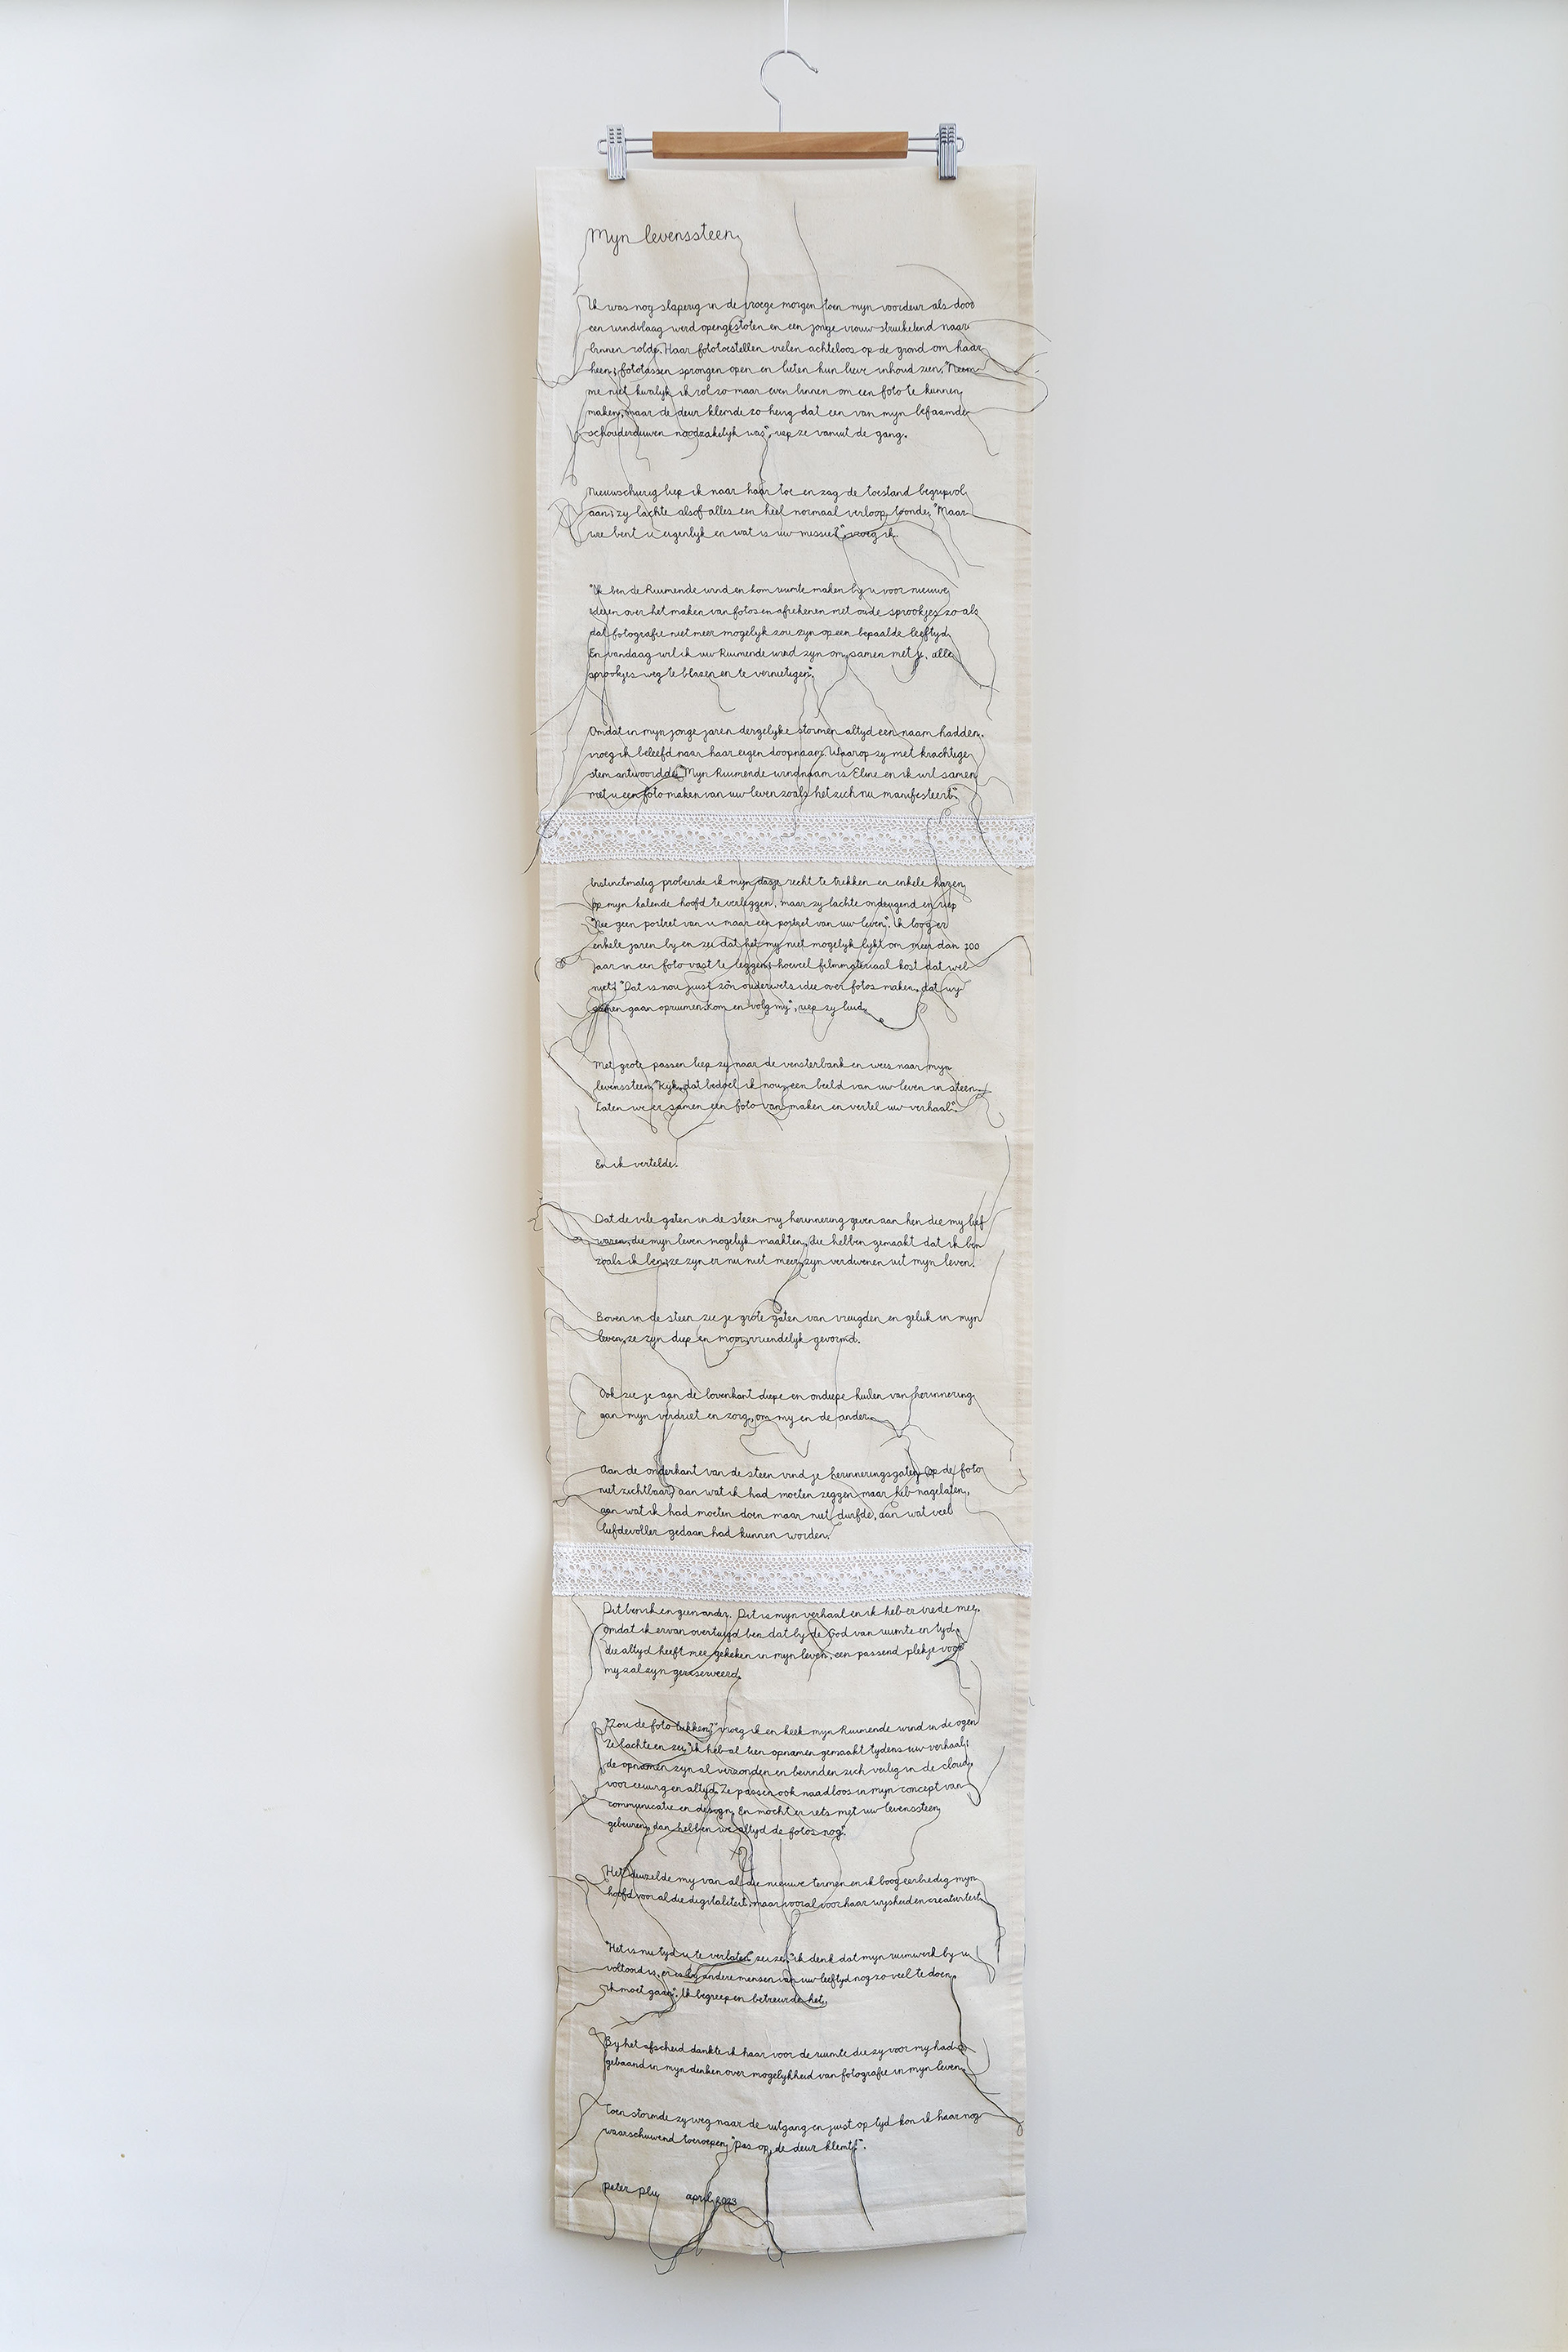 Myn levenssteen
Ik was nog slaperig in de vroege morgen toen myn voordeur als door
een windvlaag werd opengestoten en een jonge vrouw struikelend naar
binnen rolde. Haar fototoestellen vielen achteloos op de grond om haar
heen; fototassen sprongen open en lieten hun lieve inhoud zien. "Neem
me niet kwalyk ik rol zo maar even binnen om een foto te kunnen
maken, maar de deur klemde zo hevig dat een van myn befaamde
schouderduwen noodzakelyk was", riep ze vanuit de gang.
Nieuwschierig liep ik naar haar toe en zag de toestand begripvol
aan; zy lachte alsof alles een heel normaal verloop toonde. "Maar
wie bent u eigenlyk en wat is uw missie?", vroeg ik.
"Ik ben de Ruimende wind en kom ruimte maken by u voor nieuwe
ideeen over het maken van fotos en afrekenen met oude sprookjes zoals
dat fotografie niet meer mogelyk zou zyn op een bepaalde leeftyd.
En vandaag wil ik uw Ruimende wind zyn om, samen met je, alle
sprookjes weg te blazen en te vernietigen".
Omdat in myn jonge jaren dergelyke stormen altyd een naam hadden,
vroeg ik beleefd naar haar eigen doopnaam. Waarop zy met krachtige
stem antwoordde: "Myn Ruimende windnaam is Eline en ik wil samen
met u een foto maken van uw leven zoals het zich nu manifesteert".
Instinctmatig probeerde ik myn dasje recht te trekken en enkele haren
op myn kalende hoofd te verleggen, maar zy lachte ondeugend en riep
"Nee geen portret van u maar een portret van uw leven". Ik loog er
enkele jaren by en zei dat het my niet mogelyk lykt om meer dan 100
jaar in een foto vast te leggen; hoeveel filmmateriaal kost dat wel
niet! "Dat is nou juist zo'n ouderwets idee over fotos maken, dat wy
samen gaan opruimen. Kom en volg my", riep zy luid.
Met grote passen liep zy naar de vensterbank en wees naar myn
levenssteen. "Kyk, dat bedoel ik nou, een beeld van uw leven in steen.
Laten we er samen een foto van maken en vertel uw verhaal".
En ik vertelde.
Dat de vele gaten in de steen my herinnering geven aan hen die my lief
waren, die myn leven mogelyk maakten, die hebben gemaakt dat ik ben
zoals ik ben; ze zyn er nu niet meer, zyn verdwenen uit myn leven.
Boven in de steen zie je grote gaten van vreugden en geluk in myn
leven, ze zyn diep en mooi, vriendelyk gevormd.
Ook zie je aan de bovenkant diepe en ondiepe kuilen van herinnering
aan myn verdriet en zorg, om my en de ander.
Aan de onderkant van de steen vind je herinneringsgaten (op de foto
niet zichtbaar) aan wat ik had moeten zeggen maar heb nagelaten,
aan wat ik had moeten doen maar niet durfde, aan wat veel
liefdevoller gedaan had kunnen worden.
Dit ben ik en geen ander. Dit is myn verhaal en ik heb er vrede mee,
omdat ik ervan overtuigd ben dat by de God van ruimte en tyd,
die altyd heeft mee gekeken in myn leven, een passend plekje voor
my zal zyn gereserveerd.
"Zou de foto lukken?" vroeg ik en keek myn Ruimende wind in de ogen
Ze lachte en zei, "ik heb al tien opnamen gemaakt tydens uw verhaal;
de opnamen zyn al verzonden en bevinden zich veilig in de cloud,
voor eeuwig en altyd. Ze passen ook naadloos in myn concept van
communicatie en design. En mocht er iets met uw levenssteen
gebeuren, dan hebben we altyd de fotos nog".
Het duizelde my van al die nieuwe termen en ik boog eerbiedig myn
hoofd voor al die digitaliteit, maar vooral voor haar wysheid en creativiteit.
"Het is nu tyd u te verlaten" zei ze, "ik denk dat myn ruimwerk by u
voltooid is, er is by andere mensen van uw leeftyd nog zo veel te doen,
ik moet gaan". Ik begreep en betreurde het.
By het afscheid dankte ik haar voor de ruimte die zy voor my had
gebaand in myn denken over mogelykheid van fotografie in myn leven.
Toen stormde zy weg naar de uitgang en juist op tyd kon ik haar nog
waarschuwend toeroepen, "pas op, de deur klemt!".
peter ply april 2023